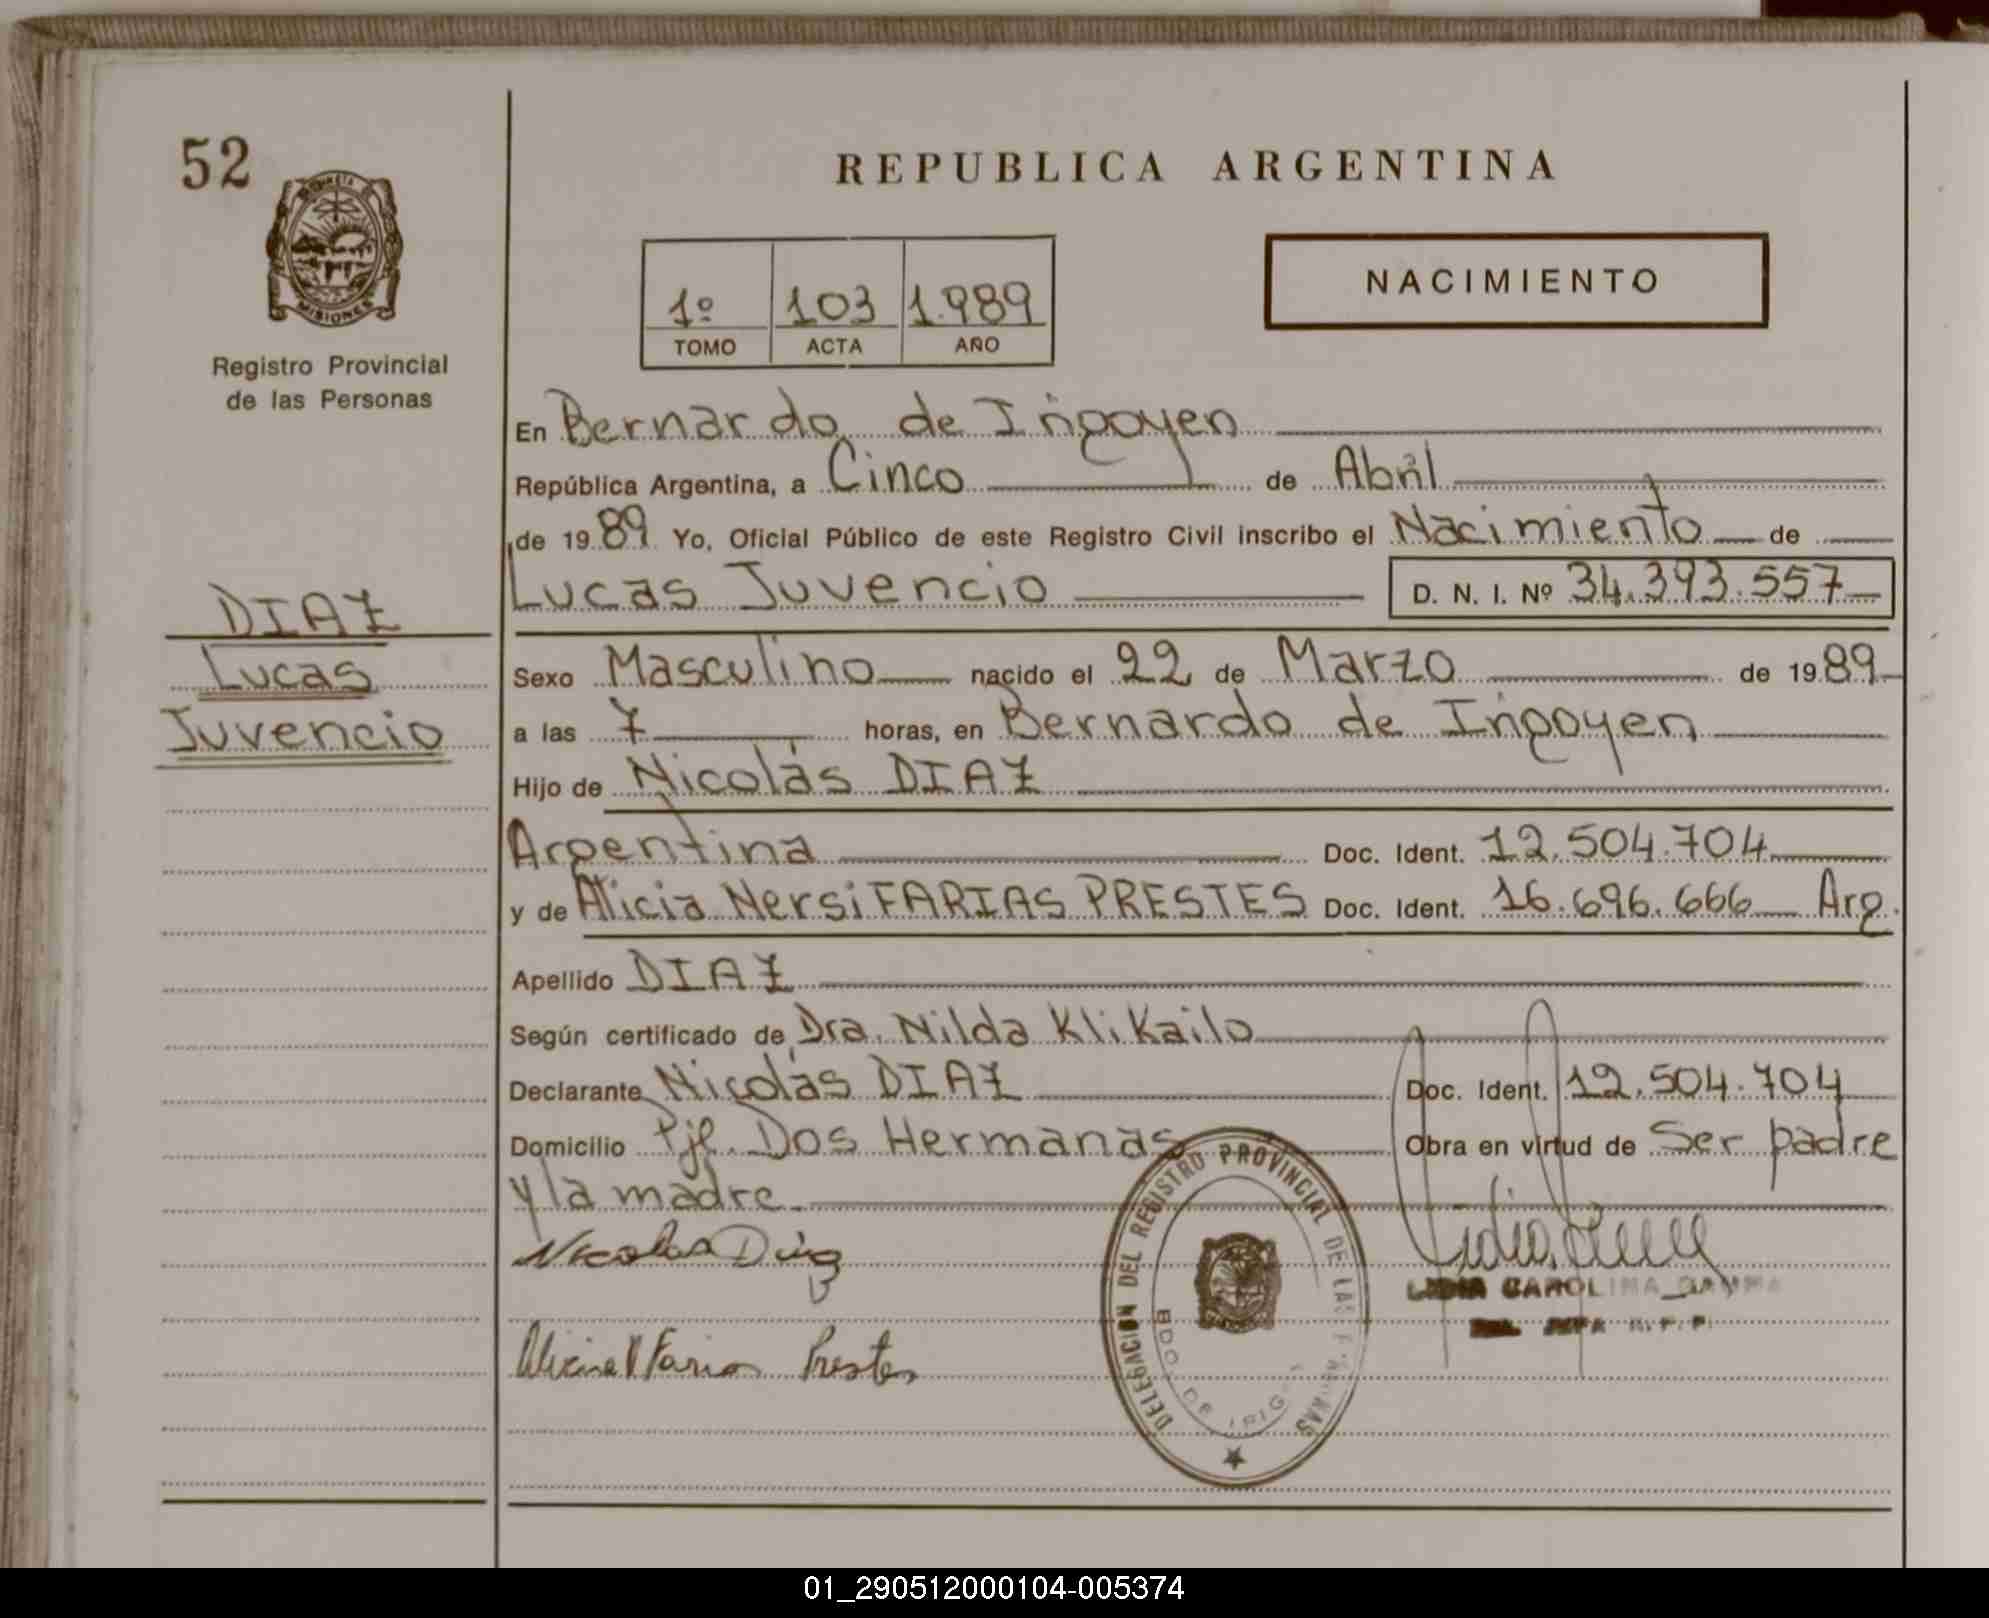 52
REPUBLICA ARGENTINA
MISIONES
Registro Provincial
de las Personas
1º 103 1.989
TOMO ACTA AÑO
NACIMIENTO
En Bernardo de Irigoyen
República Argentina, a Cinco de Abril
de 1989 Yo, Oficial Público de este Registro Civil inscribo el Nacimiento de
Lucas Juvencio D. N. I. Nº 34.393.557
DIAZ
Lucas
Juvencio
Sexo Masculino nacido el 22 de Marzo de 1989
a las 7 horas, en Bernardo de Irigoyen
Hijo de Nicolás DIAZ
Argentina Doc. Ident. 12.504.704
y de Alicia Nersi FARIAS PRESTES Doc. Ident. 16.696.666 Arg.
Apellido DIAZ
Según certificado de Dra. Nilda Klikailo
Declarante Nicolás DIAZ Doc. Ident. 12.504.704
Domicilio Pje. Dos Hermanas Obra en virtud de Ser padre
y la madre
Nicolas Diaz
Farias Prestes
DELEGACION DEL REGISTRO PROVINCIAL DE LAS PERSONAS
BDO. DE IRIG
LIDIA CAROLINA
JEFA R.P.P.
01_290512000104-005374